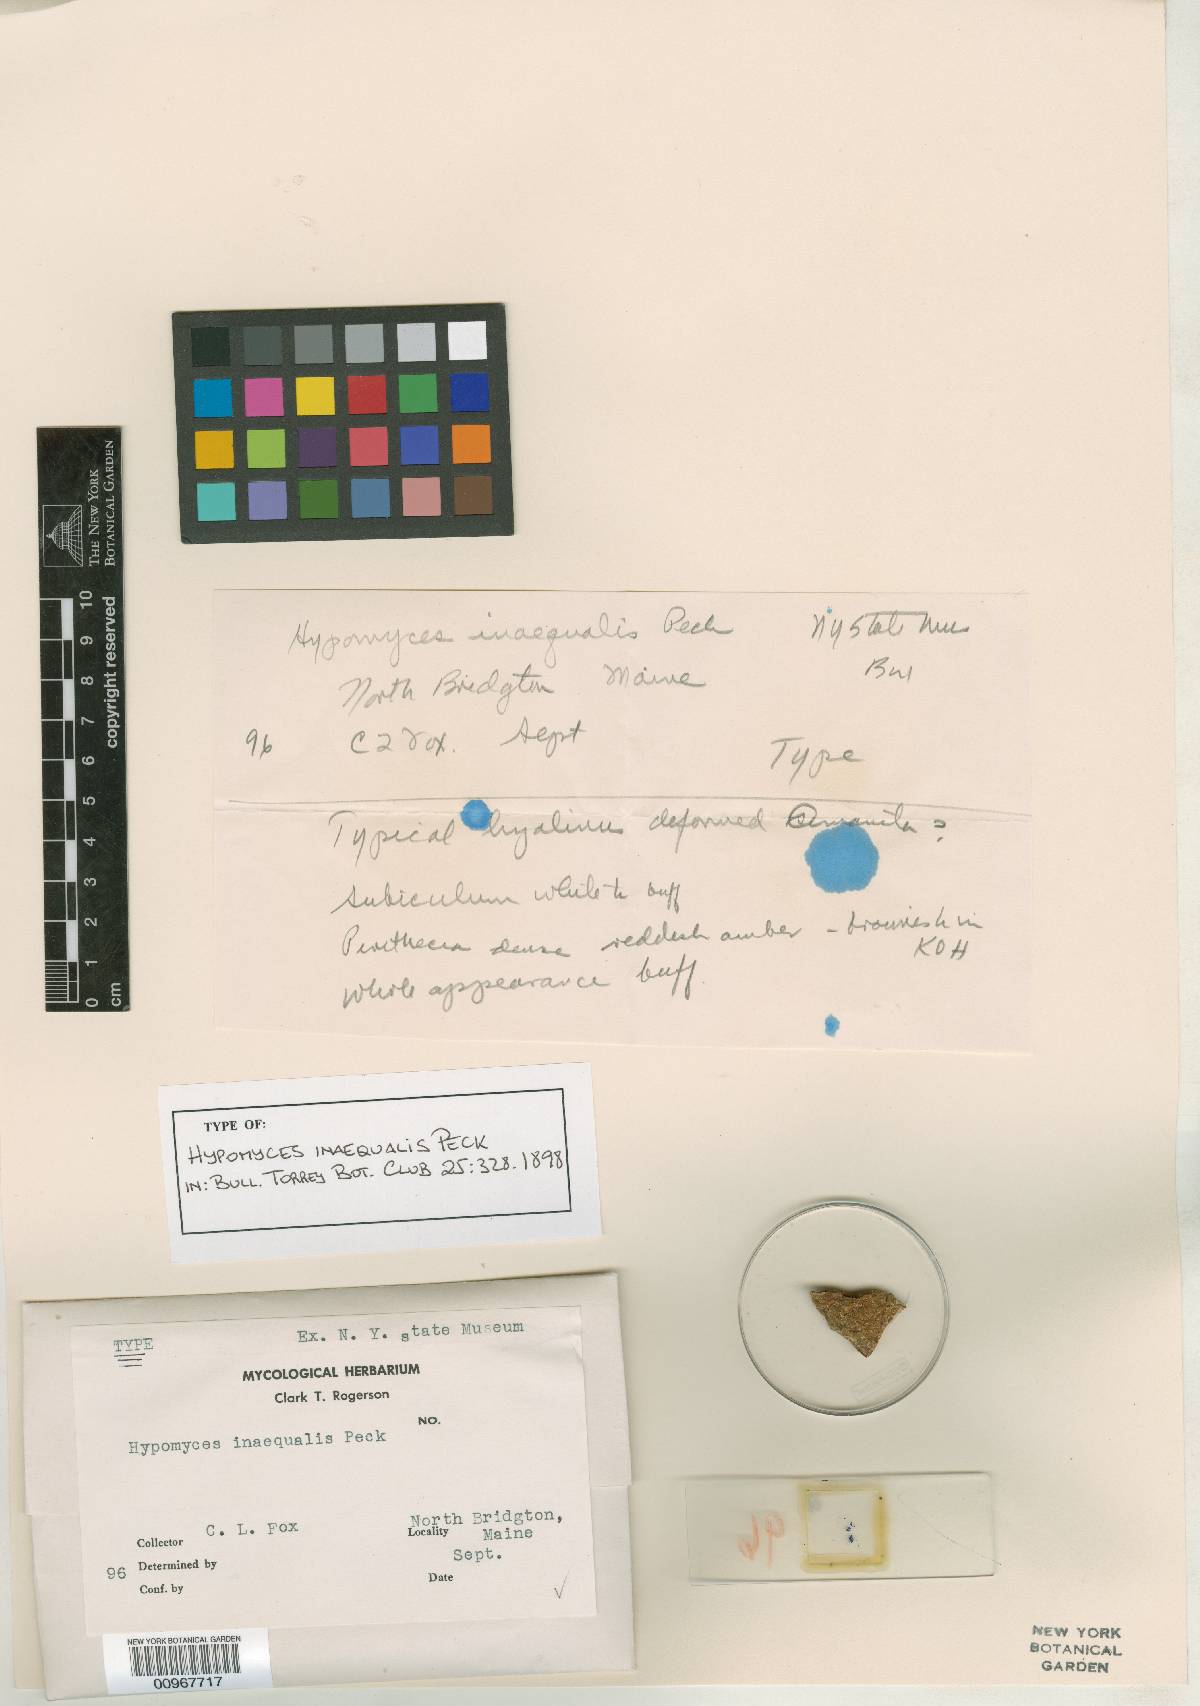 THE NEW YORK
BOTANICAL GARDEN
copyright reserved
0 1 2 3 4 5 6 7 8 9 10
cm
Hypomyces inaequalis Peck NY State Mus
North Bridgton Maine Bul
96 C L Fox. Sept
Type
Typical hyalinus deformed Amanita?
Subiculum white to buff
Perithecia dense reddish amber - brownish in
KOH
whole appearance buff.
TYPE OF:
HYPOMYCES INAEQUALIS PECK
IN: BULL. TORREY BOT. CLUB 25:328. 1898
TYPE Ex. N. Y. state Museum
MYCOLOGICAL HERBARIUM
Clark T. Rogerson
NO.
Hypomyces inaequalis Peck
Collector C. L. Fox
Locality North Bridgton,
Maine
96 Determined by Sept.
Conf. by Date
NEW YORK BOTANICAL GARDEN
00967717
96
NEW YORK
BOTANICAL
GARDEN